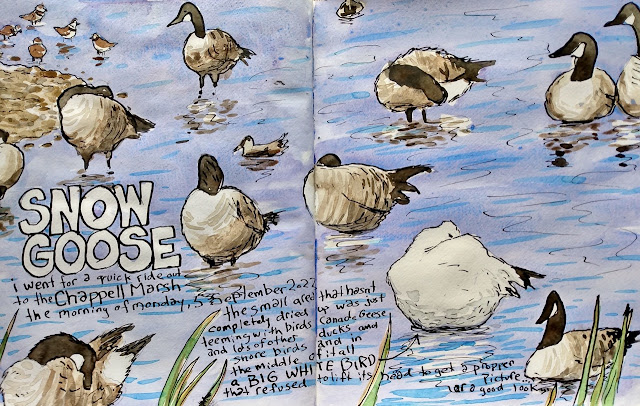 SNOW
GOOSE
i went for a quick ride out
to the Chappell Marsh
the morning of monday, 5 September 2022
the small area that hasn't
completely dried up was just
teeming with birds Canada Geese
and lots of other ducks and
shore birds and in
the middle of it all
a BIG WHITE BIRD
that refused to lift its head to get a proper
picture...
or a good look